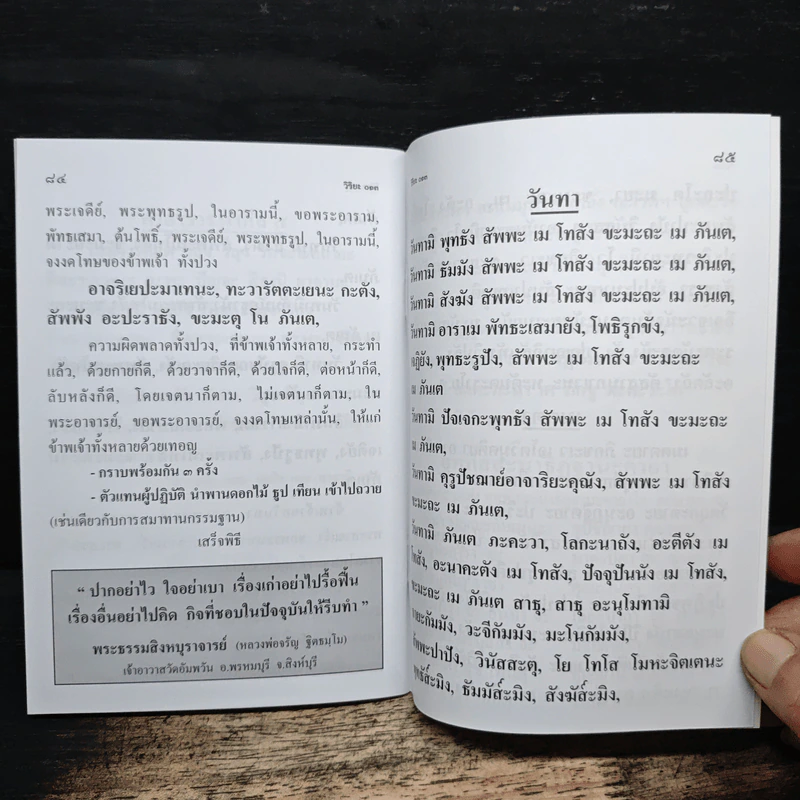 ๘๔
วิริยะ ๐๑๓
พระเจดีย์, พระพุทธรูป, ในอารามนี้, ขอพระอาราม,
พัทธเสมา, ต้นโพธิ์, พระเจดีย์, พระพุทธรูป, ในอารามนี้,
จงงดโทษของข้าพเจ้า ทั้งปวง
อาจริเยปะมาเทนะ, ทะวารัตตะเยนะ กะตัง,
สัพพัง อะปะราธัง, ขะมะตุ โน ภันเต,
ความผิดพลาดทั้งปวง, ที่ข้าพเจ้าทั้งหลาย, กระทำ
แล้ว, ด้วยกายก็ดี, ด้วยวาจาก็ดี, ด้วยใจก็ดี, ต่อหน้าก็ดี,
ลับหลังก็ดี, โดยเจตนาก็ตาม, ไม่เจตนาก็ตาม, ใน
พระอาจารย์, ขอพระอาจารย์, จงงดโทษเหล่านั้น, ให้แก่
ข้าพเจ้าทั้งหลายด้วยเทอญ
- กราบพร้อมกัน ๓ ครั้ง
- ตัวแทนผู้ปฏิบัติ นำพานดอกไม้ ธูป เทียน เข้าไปถวาย
(เช่นเดียวกับการสมาทานกรรมฐาน)
เสร็จพิธี
“ ปากอย่าไว ใจอย่าเบา เรื่องเก่าอย่าไปรื้อฟื้น
เรื่องอื่นอย่าไปคิด กิจที่ชอบในปัจจุบันให้รีบทำ ”
พระธรรมสิงหบุราจารย์ (หลวงพ่อจรัญ ฐิตธมฺโม)
เจ้าอาวาสวัดอัมพวัน อ.พรหมบุรี จ.สิงห์บุรี
๘๕
วิริยะ ๐๑๓
วันทา
วันทามิ พุทธัง สัพพะ เม โทสัง ขะมะถะ เม ภันเต,
วันทามิ ธัมมัง สัพพะ เม โทสัง ขะมะถะ เม ภันเต,
วันทามิ สังฆัง สัพพะ เม โทสัง ขะมะถะ เม ภันเต,
วันทามิ อาราเม พัทธะเสมายัง, โพธิรุกขัง,
พุทธะรูปัง, สัพพะ เม โทสัง ขะมะถะ
เม ภันเต
วันทามิ ปัจเจกะพุทธัง สัพพะ เม โทสัง ขะมะถะ
เม ภันเต,
วันทามิ คุรูปัชฌาย์อาจาริยะคุณัง, สัพพะ เม โทสัง
ขะมะถะ เม ภันเต,
วันทามิ ภันเต ภะคะวา, โลกะนาถัง, อะตีตัง เม
โทสัง, อะนาคะตัง เม โทสัง, ปัจจุปันนัง เม โทสัง,
ขะมะถะ เม ภันเต สาธุ, สาธุ อะนุโมทามิ
กายะกัมมัง, วะจีกัมมัง, มะโนกัมมัง,
สัพพะปาปัง, วินัสสะตุ, โย โทโส โมหะจิตเตนะ
พุทธัส๎ะมิง, ธัมมัส๎ะมิง, สังฆัส๎ะมิง,